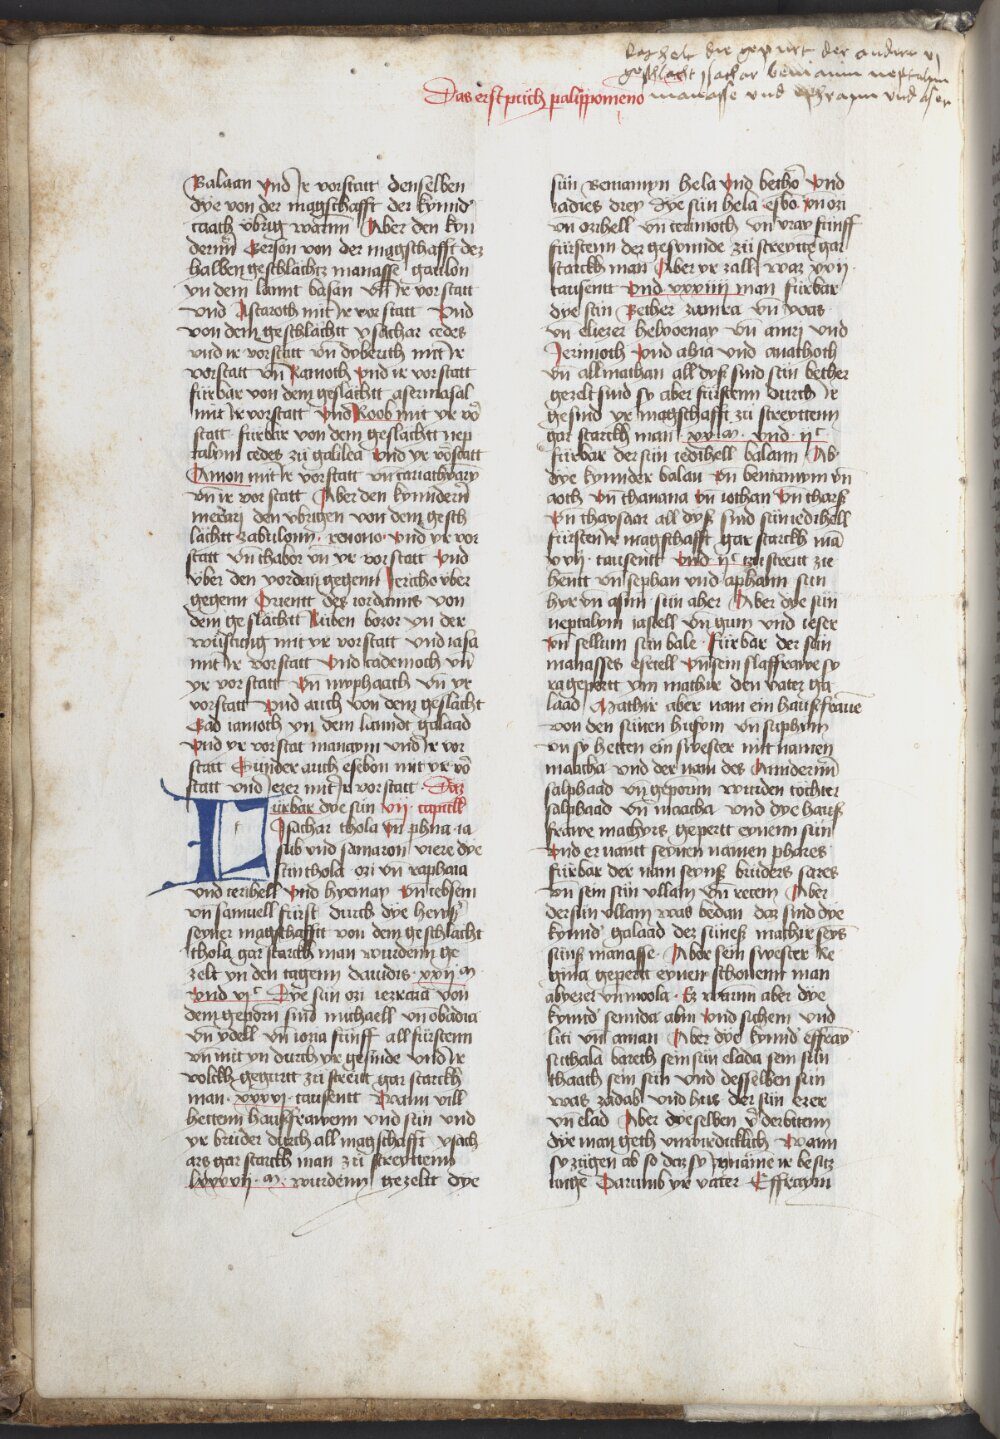 kaphelt die gepurt der andern vj
geschlächt ysachar beniamin neptalim
manasse vnd effraym vnd aser
Das erst püch palippomeno
Balaan vnd ir vorstatt denselben
dye von der magschafft der kynnd
caath übrig warnn Aber den kyn
dernn Gerson von der magschafft dez
halben geschlächtz manasse gaulon
yn dem lannt basan vnd ir vor statt
vnd Astaroth mit ir vor statt Vnd
von dem geschlächtt ysachar cedes
vnd ir vorstatt vn dyberith mit ir
vorstatt vn Ramoth Vnd ir vor statt
fürbar von dem geslächtt aser masal
mit ir vorstatt Vnd Roob mit yr vor
statt fürbar von dem geslächtt nep
talym cedes zü galilea Vnd yr vorstatt
Amon mit ir vorstatt vn cariathyary
vn ir vor statt Aber den kynndern
merari den vbrigen von dem gesch
lächtt zabulonn renono Vnd yr vor
statt vn thabor vn yr vor statt Vnd
über den yordan gegenn Jericho vber
gegenn Orientt des iordanns von
dem geslächtt Rüben bozor yn der
wüstung mit yr vorstatt vnd iasa
mit ir vorstatt Vnd cademoch vn
yr vor statt Vn myphaath vn yr
vorstatt Vnd auch von dem geslächt
Gad ramoth yn dem lanndt galaad
Vnd yr vorstat manaym vnd ir vor
statt Sunder auch esebon mit yr vor
statt vnd iezer mit ir vorstatt Daz
Fürbar dye sün vij capitell
Isachar thola vn phua ia
sub vnd samaron viere dye
sün thola ozi vn raphaia
vnd ierihell Vnd hyemay Vn iebsem
vn samuell fürst durch dye hewser
seyner magschafft von dem geschlächt
thola gar starckh man wurdenn ge
zelt yn den tagenn dauidis xxij m
Vnd vj c Dye sün ozi iezraia von
dem geporn sind michaell vn obadia
vn yohell vn iona fünff all fürstenn
vn mit yn durch yr gesinde vnd ir
volckh gegurtt zü streitt gar starckh
man xxxvj tausentt Wann vill
hettenn hausfrawenn vnd sün vnd
yr brüder durch all magschafft ysach
ars gar starckh man zü streyttenn
lxxxvij m wurdenn gezeltt dye
sün Beniamyn bela vnd betho Vnd
iadies drey Dye sün bela esbo vn ozi
vn ozihell vn ierimoth vn vray fünff
fürstenn der gesynnde zü streytte gar
starckh man Aber yr zall war xxij
tausentt Vnd xxxiiij man fürbar
dye sün Bether zamira vn yoas
vn eliezer helyoenay vn amri vnd
Jerimoth Vnd abia vnd anathoth
vn allmathan all dyß sind sün bether
gezelt sind sy aber fürstenn durch ir
gesind yr magschafft zü streyttenn
gar starckh man xx m vnd ij c
fürbar der sün iedihell balann Ab
dye kynnder balan Vn beniamyn vn
aoth Vn thanana Vn iothan Vn tharß
Vn thaysaar all dyß sind sün iedihell
fürsten ir magschafft gar starckh ma
xvij tausentt Vnd ij c zu streitt zie
hentt vn sephan vnd aphann sün
hyr vn asim sün aher Aber dye sün
neptalym iasiell vn guni vnd ieser
Vn sellum sün bale Fürbar der sün
manasses esriell Vn sein slaffrawe sy
ra gepertt ym machir den vater ga
laad Machir aber nam ein hausfrawe
von den sünen husym vn suphym
vn sy hetten ein swester mit namen
maacha vnd der nam des Anndernn
salphaad vn geporun wurden töchter
salphaad vn maacha vnd dye haus
frawe machyrs gepertt eynenn sün
Vnd er nantt seynen namen phares
fürbar der nam seynß brüders sares
vn sein sün vllam Vn recem Aber
der sün vllam was bedan daz sind dye
kynnd galaad dez süneß machir seyns
sünß manasse Aber sein swester Re
gina gepertt eynen schonenn man
abyezer vn moola Ez warnn aber dye
kynnd semida ahin Vnd sichem vnd
liti vnd aman Aber dye kynnd effraym
suthala bareth sein sün elada sein sün
thaath sein sün vnd desselben sün
was zadab vnd hus der sün ezer
vn elad Aber dyeselben verderbttenn
dye man geth ynwirdicklich Wann
sy zügen ab so daz sy ynnäme ir besitz
unge Darumb yr vater Effraym